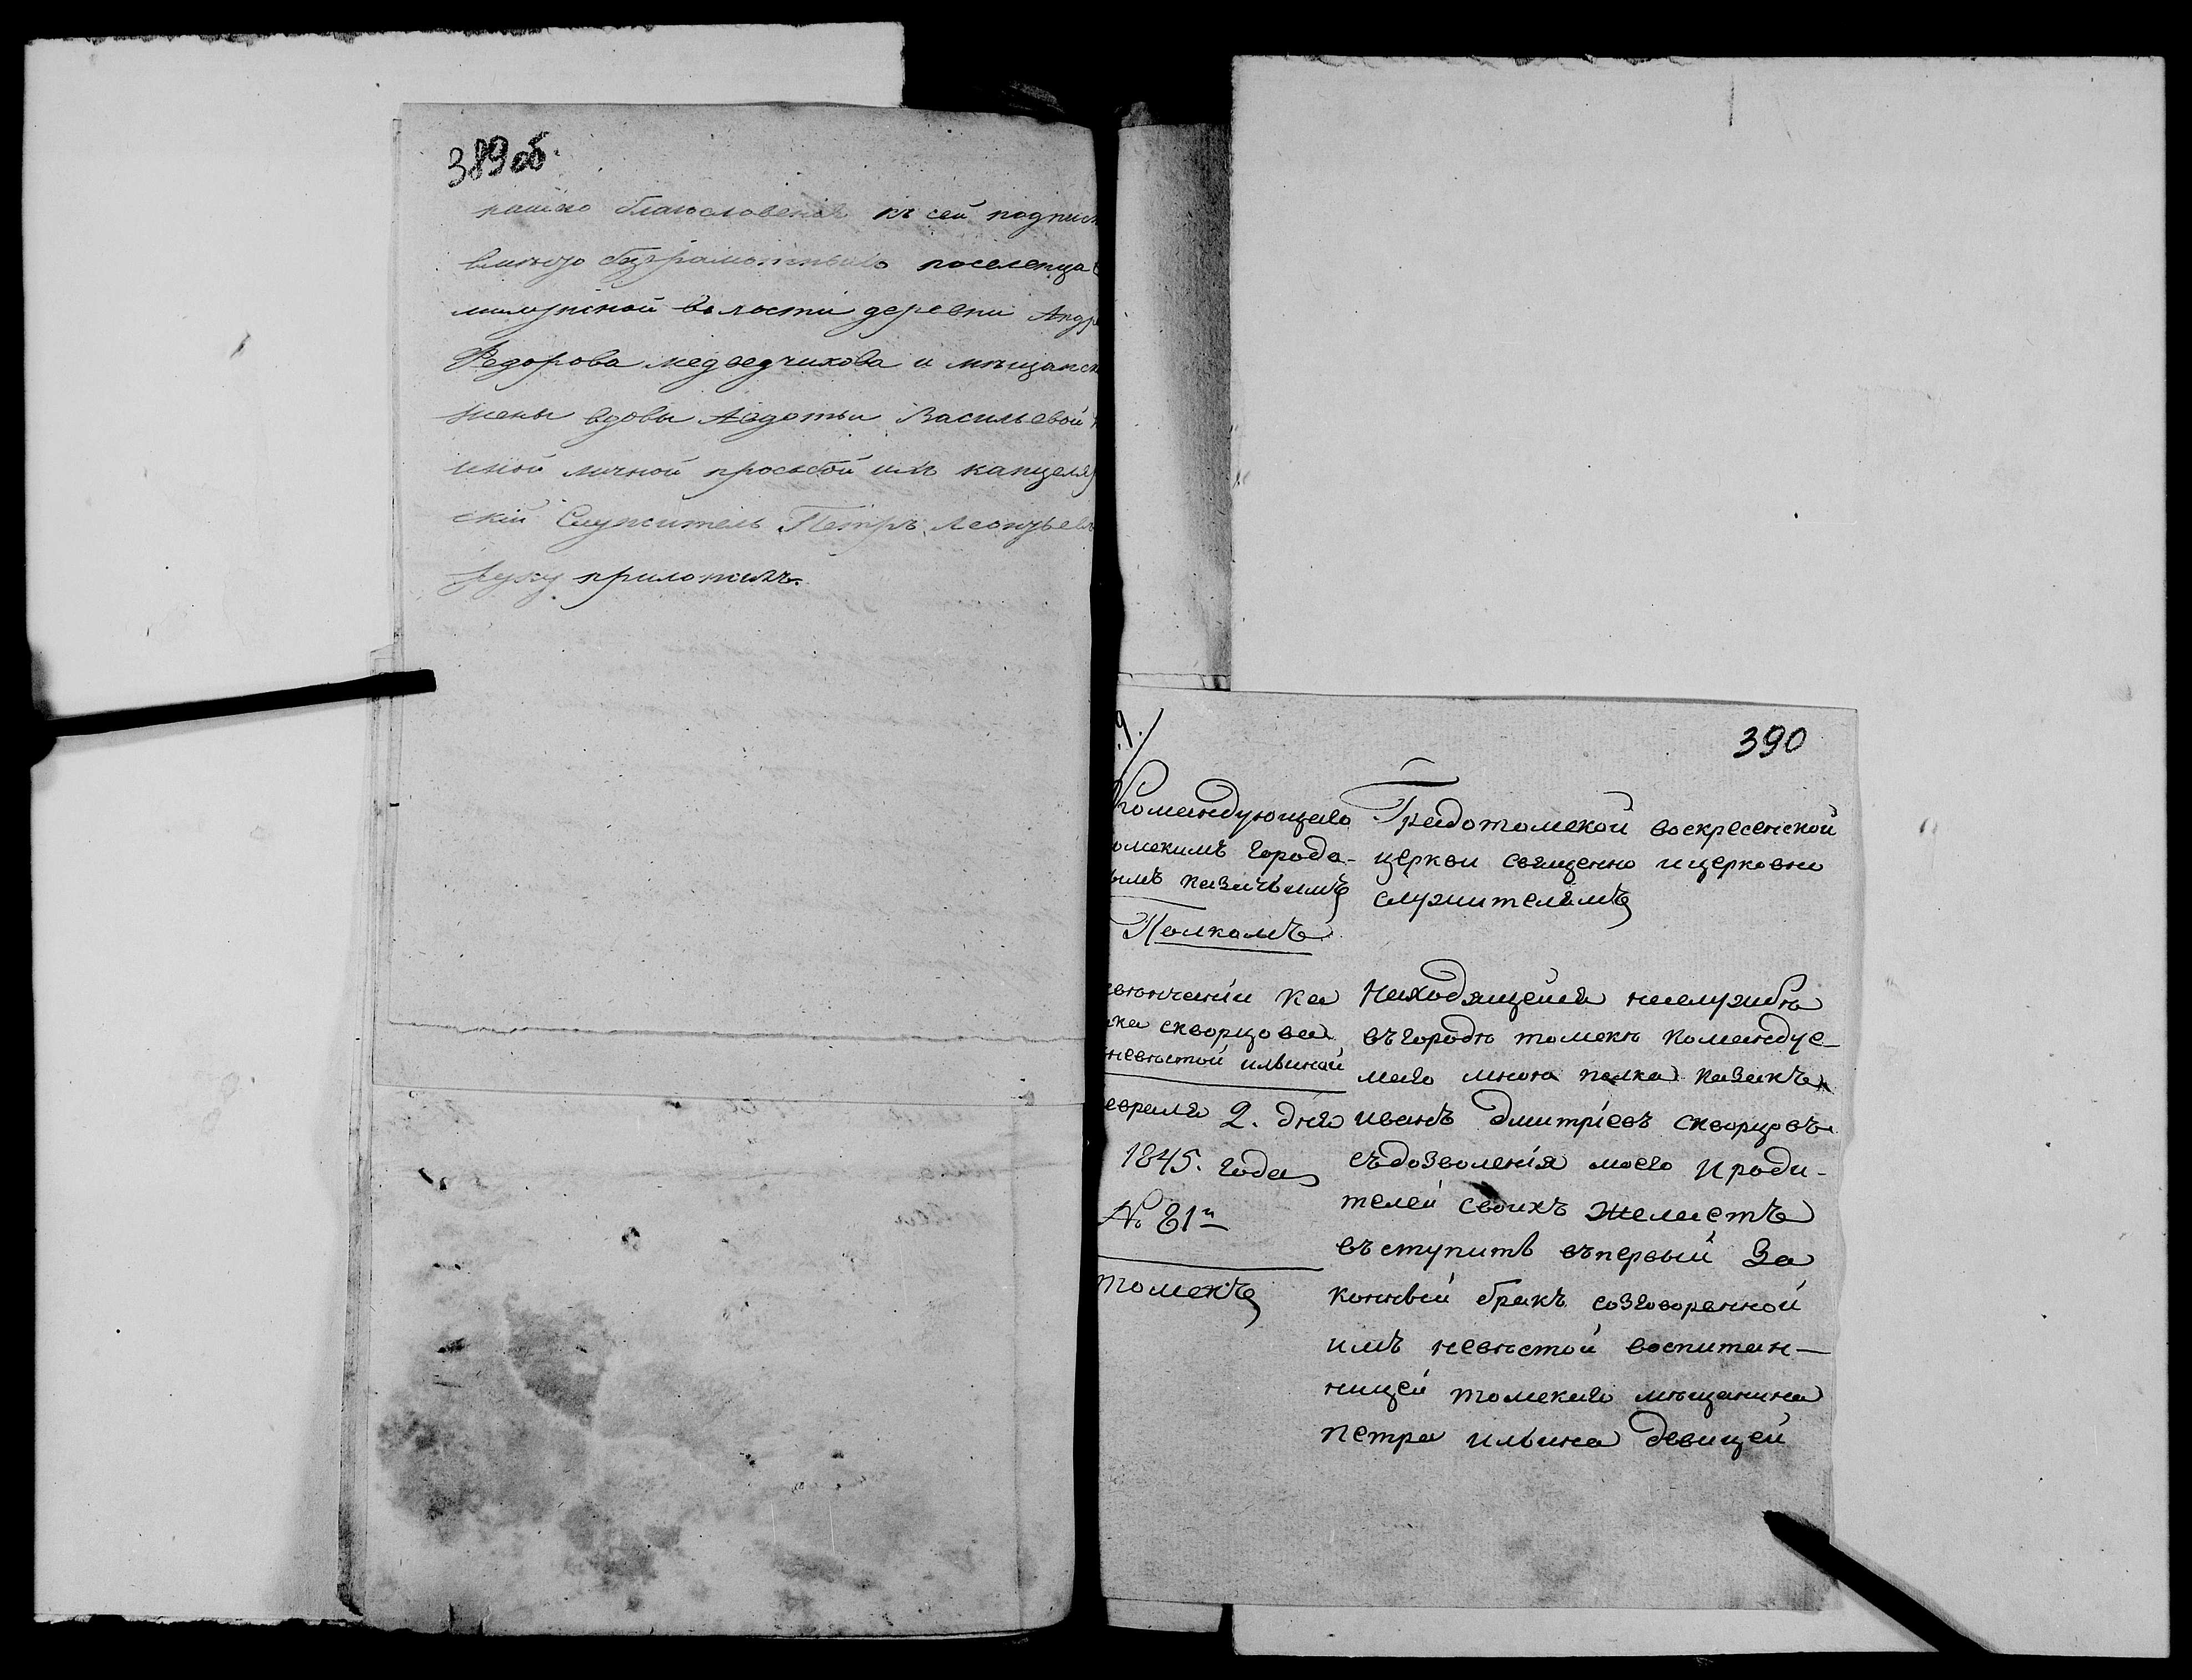 389 об.
нашего благословения къ сей подписк
вмѣсто безграмотныхъ поселенца
волости деревни Андре
Федорова медведчикова и мѣщанск
жены вдовы Авдотьи Васильевой
иной личной прозьбой ихъ канцеляр
скій Служитель Петръ Леонтьевъ
руку приложилъ.
390
Командующаго
омскимъ города-
ымъ казачьимъ
Полкомъ
овѣнчаніи ка
ака скворцова
невѣстой ильиной
евраля 2. дня
1845. года
№ 81й
томскъ
Градотомской воскресенской
церкви священно ицерковно
служителямъ
Находящейся наслужбѣ
въгородѣ томскѣ командуе-
маго мною полка казакъ
иванъ дмитріевъ скворцовъ
съдозволенія моего и роди-
телей своихъ желаетъ
въступить въпервый За
конный бракъ созговоренной
имъ невѣстой воспитан-
ницей томскаго мѣщанина
петра ильина девицей